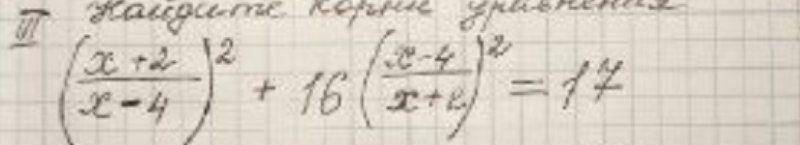 III Найдите корни уравнения
((x+2)/(x-4))² + 16((x-4)/(x+2))² = 17